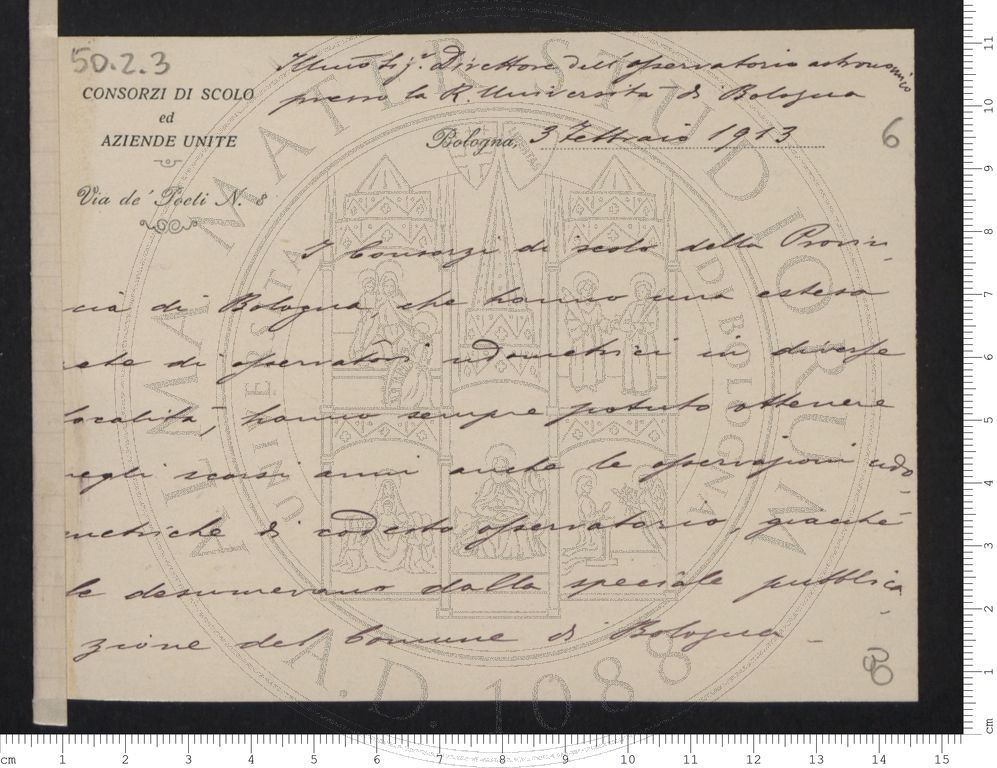 50.2.3
Illmo Sigr. Direttore dell'osservatorio astronomico
presso la R. Università di Bologna
CONSORZI DI SCOLO
ed
AZIENDE UNITE
Bologna, 3 Febbraio 1913
6
Via de' Poeti N. 8
I Consorzi di scolo della Provin-
cia di Bologna, che hanno una estesa
rete di osservatori udometrici in diverse
località, hanno sempre potuto ottenere
negli scorsi anni anche le osservazioni udo-
metriche di codesto osservatorio, giacchè
le desumevano dalla speciale pubblica-
zione del Comune di Bologna -
ALMA MATER STUDIORUM
A.D. 1088
UNIVERSITÀ DI BOLOGNA
cm 1 2 3 4 5 6 7 8 9 10 11 12 13 14 15
cm 1 2 3 4 5 6 7 8 9 10 11